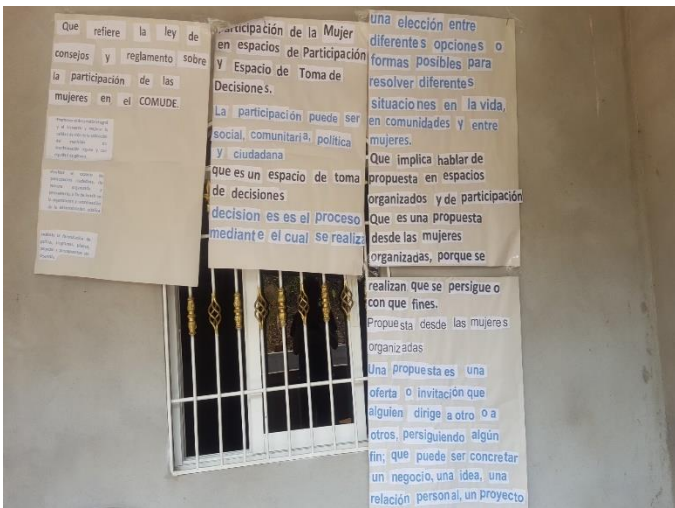 Que refiere la ley de
consejos y reglamento sobre
la participación de las
mujeres en el COMUDE
Participación de la Mujer
en espacios de Participación
y Espacio de Toma de
Decisiones.
La participación puede ser
social, comunitaria, política
y ciudadana
que es un espacio de toma
de decisiones
decision es es el proceso
mediante el cual se realiza
una elección entre
diferentes opciones o
formas posibles para
resolver diferentes
situaciones en la vida,
en comunidades y entre
mujeres.
Que implica hablar de
propuesta en espacios
organizados y de participación
Que es una propuesta
desde las mujeres
organizadas, porque se
realizan que se persigue o
con que fines.
Propuesta desde las mujeres
organizadas
Una propuesta es una
oferta o invitación que
alguien dirige a otro o a
otros, persiguiendo algún
fin; que puede ser concretar
un negocio, una idea, una
relación personal, un proyecto